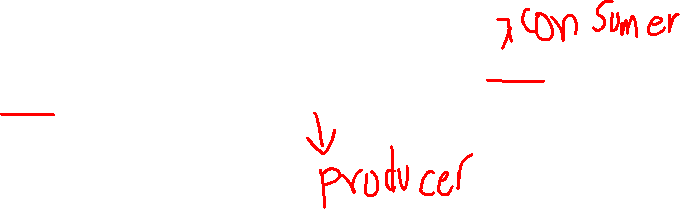 consumer
producer